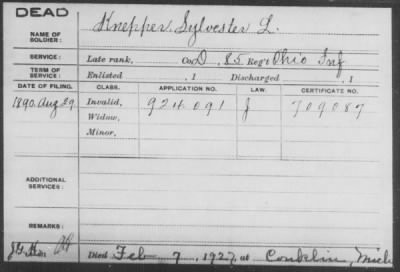 DEAD
NAME OF SOLDIER: Knepper, Sylvester L.
SERVICE: Late rank, Co. D, 85 Reg't Ohio Inf
TERM OF SERVICE: Enlisted , 1 Discharged , 1
DATE OF FILING. CLASS. APPLICATION NO. LAW. CERTIFICATE NO.
1890 Aug 29 Invalid, 924091 J 709087
Widow,
Minor,
ADDITIONAL SERVICES:
REMARKS:
Died Feb 7, 1927, at Conklin, Mich